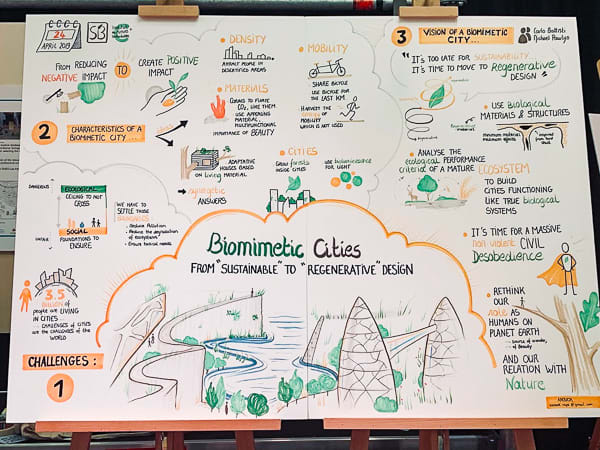 24
APRIL 2019
SB
FROM REDUCING
NEGATIVE IMPACT
TO
CREATE POSITIVE
IMPACT
2
CHARACTERISTICS OF A
BIOMIMETIC CITY...
DENSITY
ATTRACT PEOPLE IN
DESERTIFIED AREAS
MATERIALS
MATERIAL, MULTIFUNCTIONAL
IMPORTANCE OF BEAUTY
ADAPTATIVE
HOUSES BASED
ON LIVING MATERIAL
SYNERGETIC
ANSWERS
MOBILITY
SHARE BICYCLE
USE BICYCLE FOR
THE LAST KM
HARVEST THE
ENERGY OF
MOBILITY
WHICH IS NOT USED
CITIES
GROW forests
INSIDE CITIES
USE bioluminescence
FOR LIGHT
3
VISION OF A BIOMIMETIC
CITY...
Carlo Battisti
Michael Pawlyn
"IT'S TOO LATE FOR SUSTAINABILITY.
IT'S TIME TO MOVE TO Regenerative
DESIGN"
USE Biological
MATERIALS & STRUCTURES
minimum materials
maximum effects
inspired from
ANALYSE THE
ecological PERFORMANCE
criteria OF A MATURE ECOSYSTEM
TO BUILD
CITIES FUNCTIONING
LIKE TRUE biological
SYSTEMS
IT'S TIME FOR A MASSIVE
non violent CIVIL
Desobedience
RETHINK
OUR role AS
HUMANS ON
PLANET EARTH
source of wonder,
of Beauty
AND OUR
RELATION WITH
Nature
DANGEROUS
ECOLOGICAL
CEILING TO NOT
CROSS
SOCIAL
FOUNDATIONS TO
ENSURE
WE HAVE TO
SETTLE THOSE
BOUNDARIES
Reduce Pollution
Reduce the degradation
of ecosystems
Ensure social needs
3.5
BILLION OF
people ARE LIVING
IN CITIES
CHALLENGES OF CITIES
ARE THE CHALLENGES OF THE
WORLD
CHALLENGES :
1
Biomimetic Cities
FROM "SUSTAINABLE" TO "REGENERATIVE" DESIGN